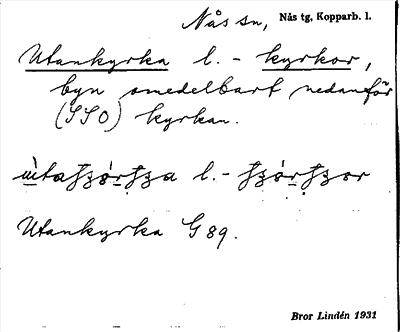 Nås sn, Nås tg, Kopparb. l.
Utankyrka l. - kyrkor,
byn omedelbart nedanför
(SSO) kyrkan.
l. -
Utankyrka G 89.
Bror Lindén 1931